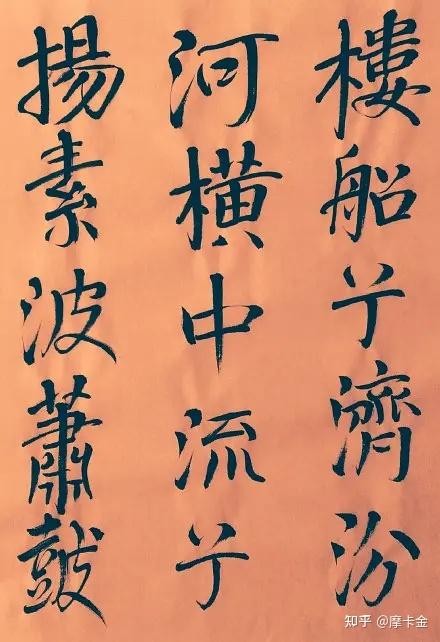 樓船兮濟汾
河橫中流兮
揚素波蕭鼓
知乎 @摩卡金